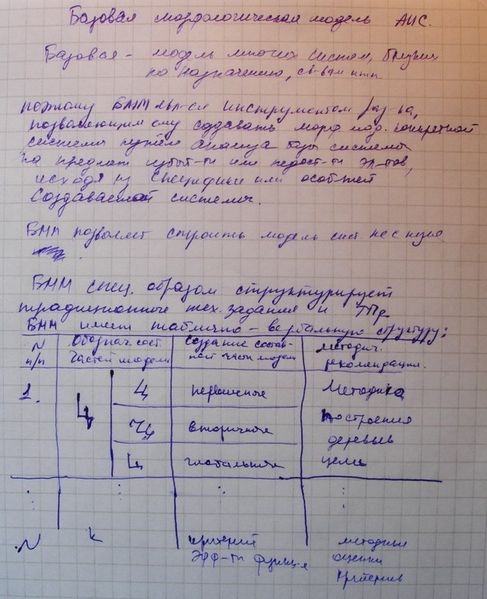 Базовая морфологическая модель АИС.
Базовая - модель многих систем, близких
по назначению, св-вам и тп
поэтому БММ явл-ся инструментом раз-ка,
позволяющим ему создавать морф. мод. конкретной
системы путём анализа баз системы
на предмет избыт-ти или недост-ти эл-тов,
исходя из специфики или особ-тей
создаваемой системы.
БММ позволяет строить модель сист не с нуля
БММ спец. образом структурирует
традиционное тех. задания и ТПр.
БММ имеет таблично-вербальную структуру:
N п/п
Обознач. сост. частей модели
Создание состав-ной части модели
Методич. рекомендации.
1. Ц
Ц первичные
Методика
вторичные
построения
деревьев
Ц глобальные
цели
N К
критерий
методика
Эфф-ти функц-я
оценки
критериев